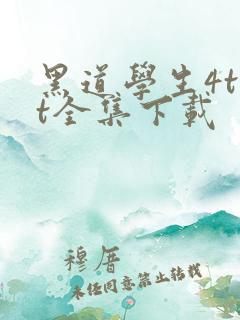 黑道學生4t
t全集下載
穆厝
未经同意禁止转载